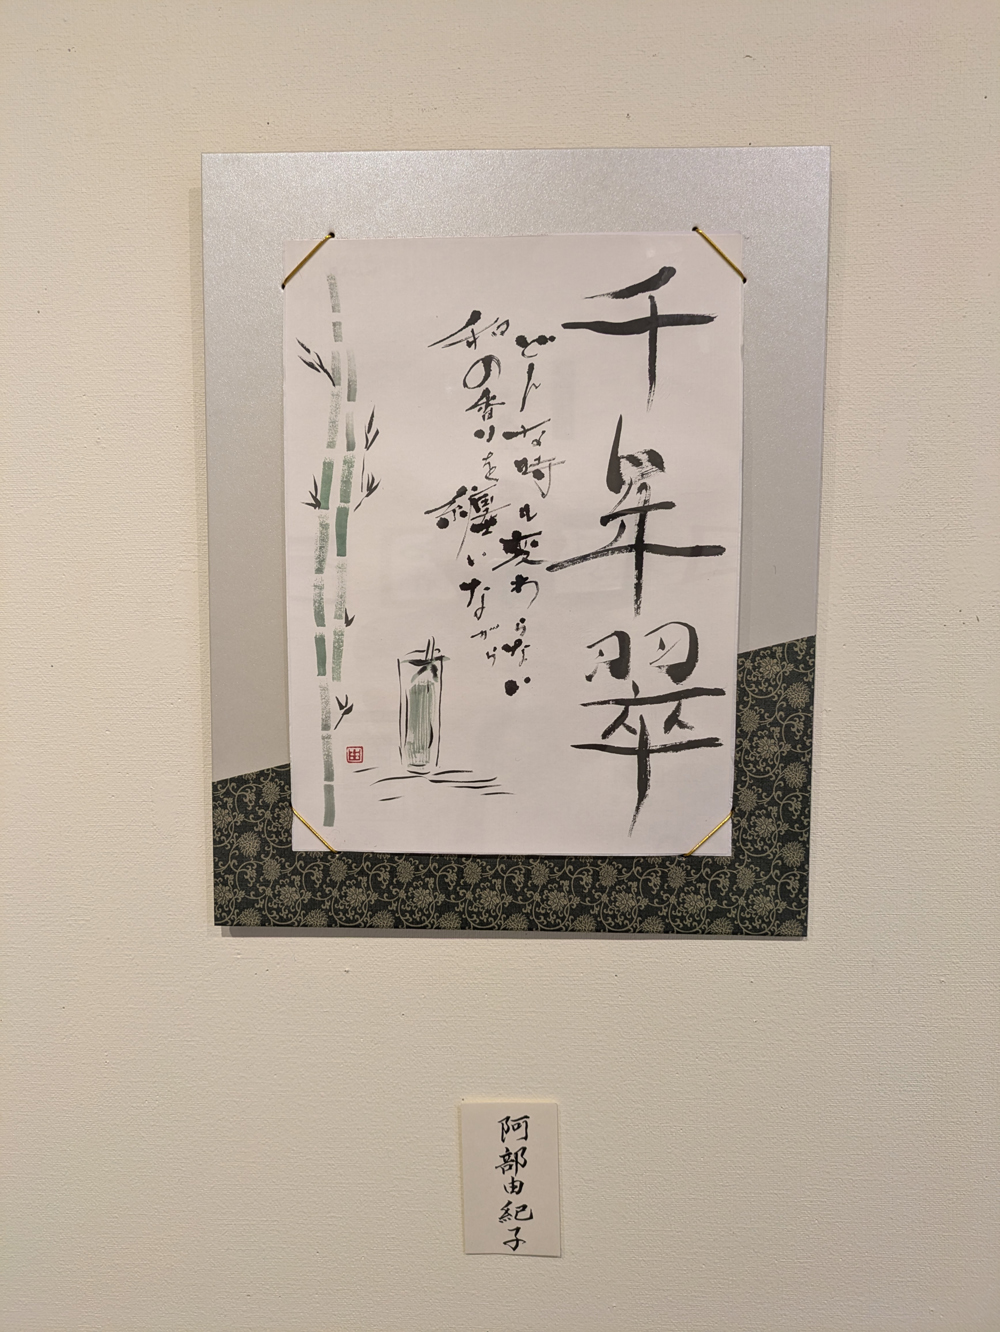 千年翠
どんな時も変わらない
和の香りを纏いながら
由
阿部由紀子